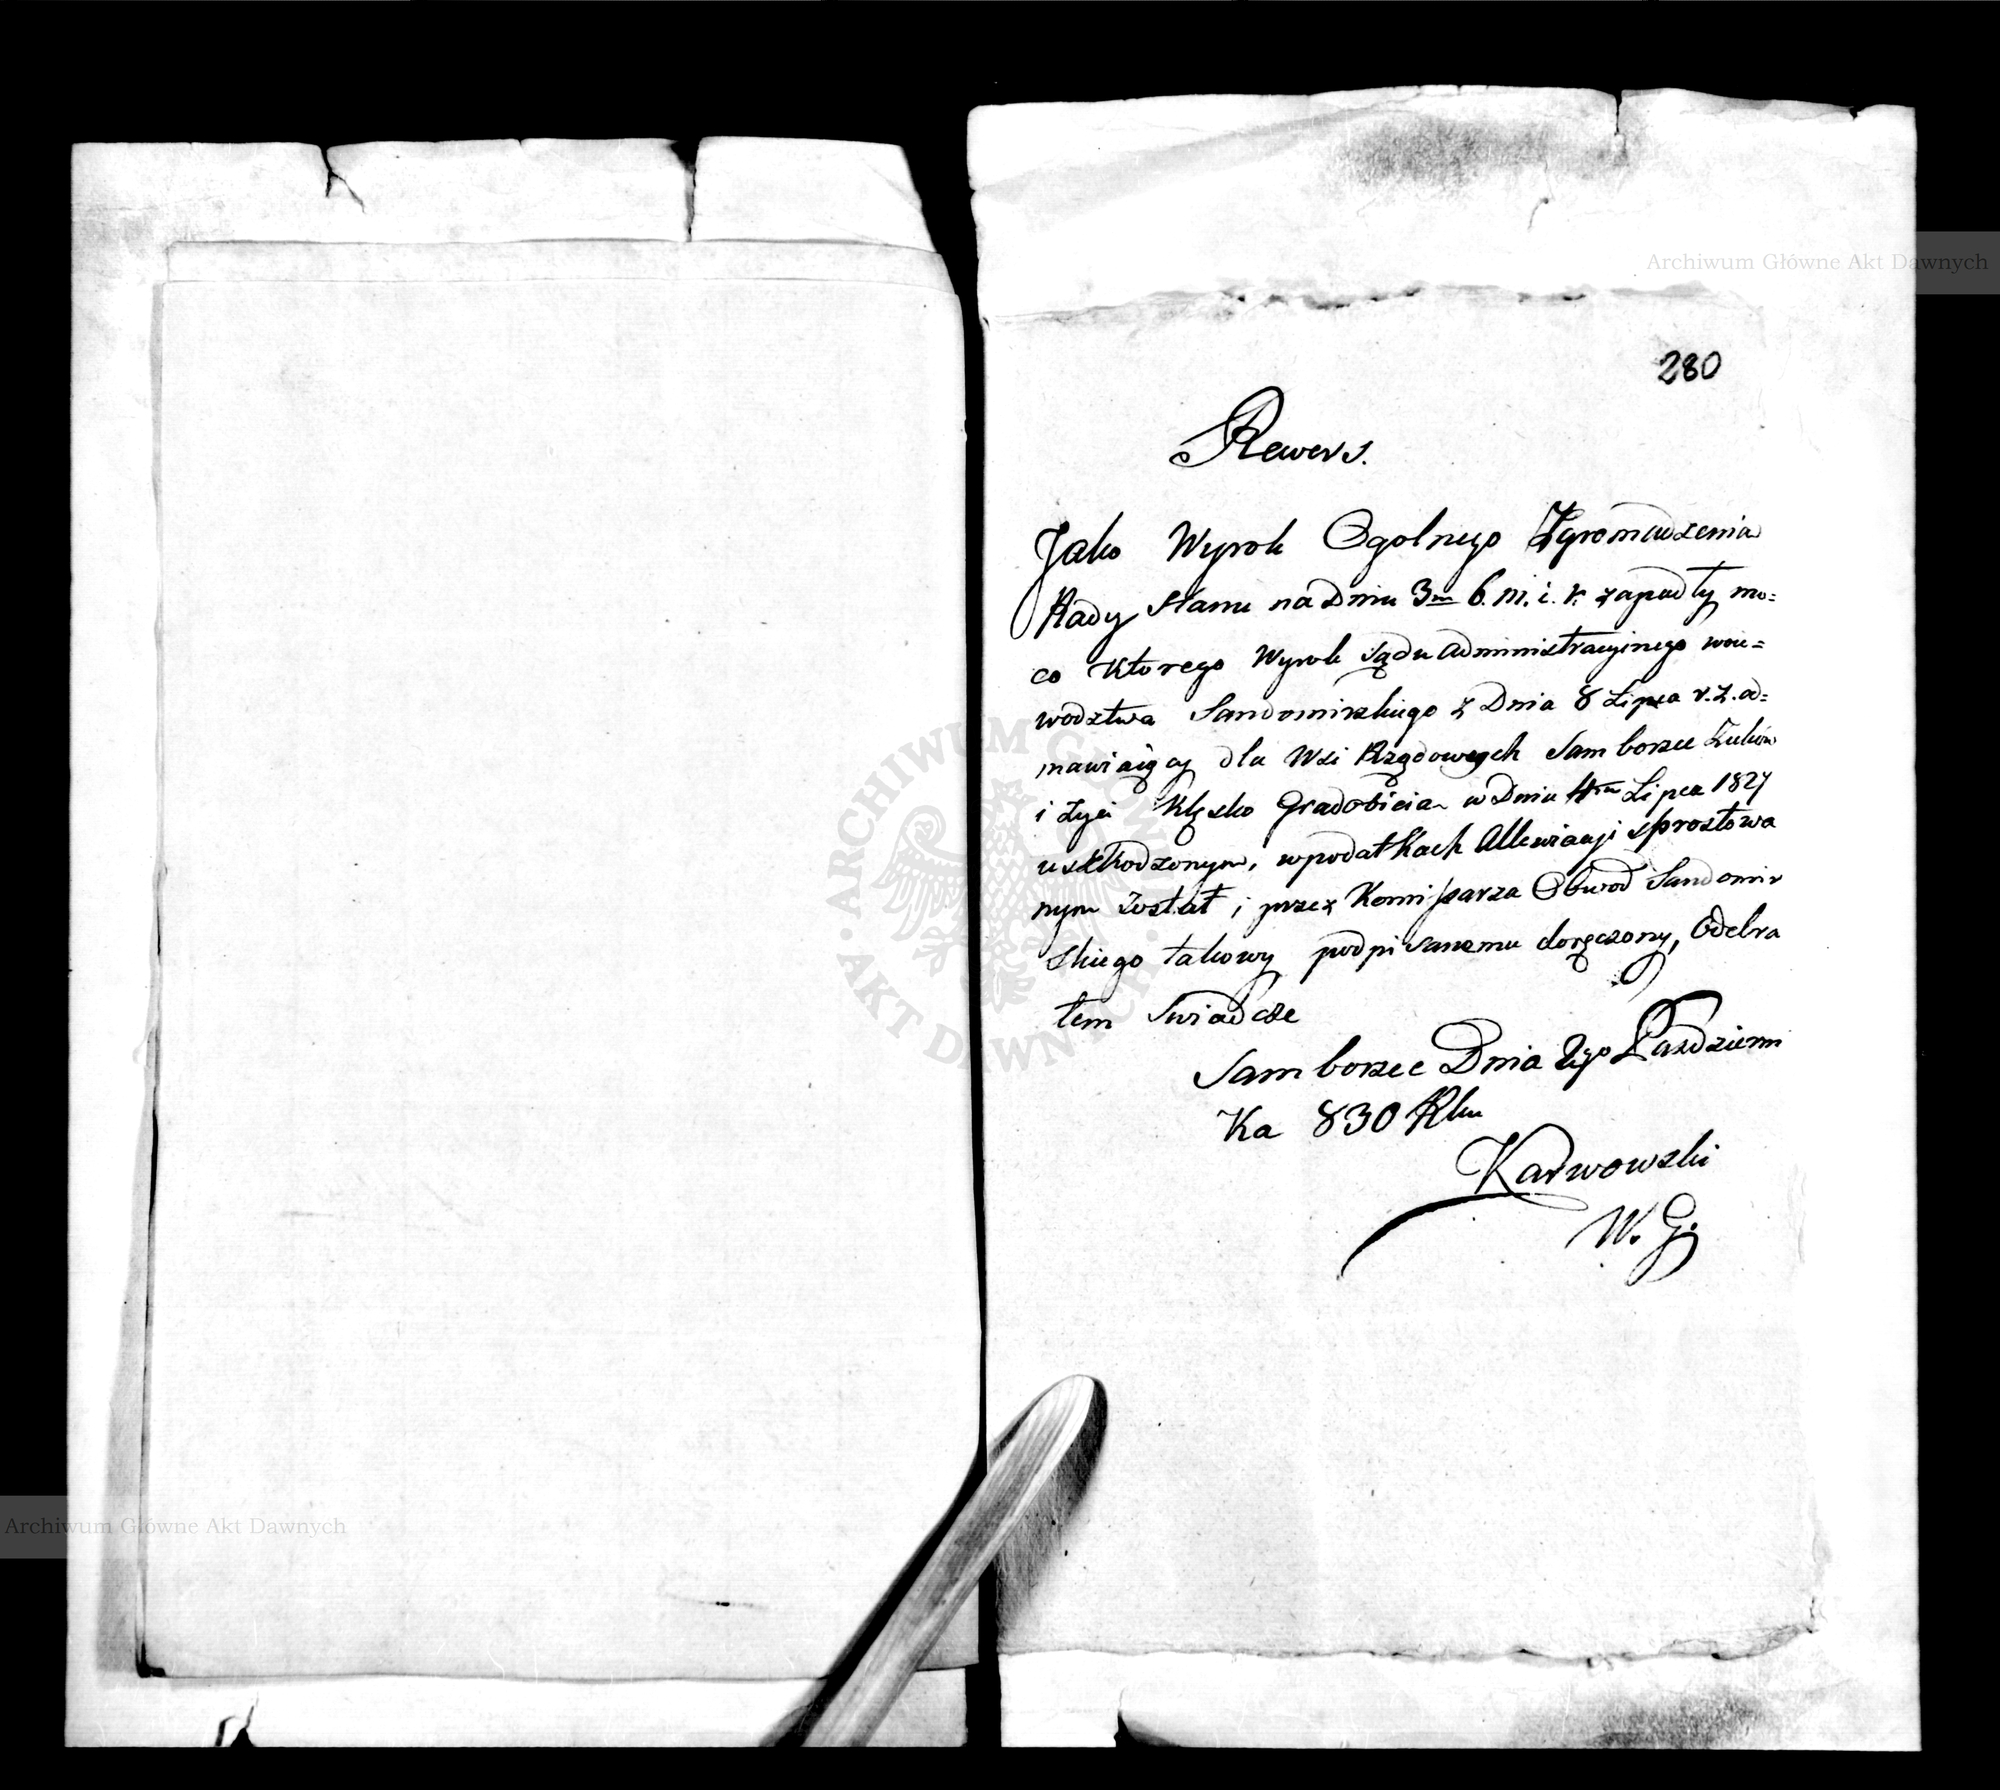 Archiwum Główne Akt Dawnych
280
Rewers.
Jako Wyrok Ogolnego Zgromadzenia
Rady Stanu na Dniu 3m b. m. i. r. zapadły mo=
co ktorego Wyrok sądu administracyinego woie=
wodztwa Sandomirskiego z Dnia 8 Lipca r. z. od=
mawiaiący dla Wsi Rządowych Samborzec
i Klęsko Gradobicia w Dniu 4m Lipca 1827
uszkodzonym, w podatkach Allewiacyi sprostowa
nym został i przez Komissarza Obwod Sandomir
skiego takowy podpisanemu doręczony, Odebra
łem Swiadcze
Samborzec Dnia Pazdzierni
Ka 830 Rku
Karwowski
W. G.
ARCHIWUM GŁÓWNE
AKT DAWNYCH
Archiwum Główne Akt Dawnych